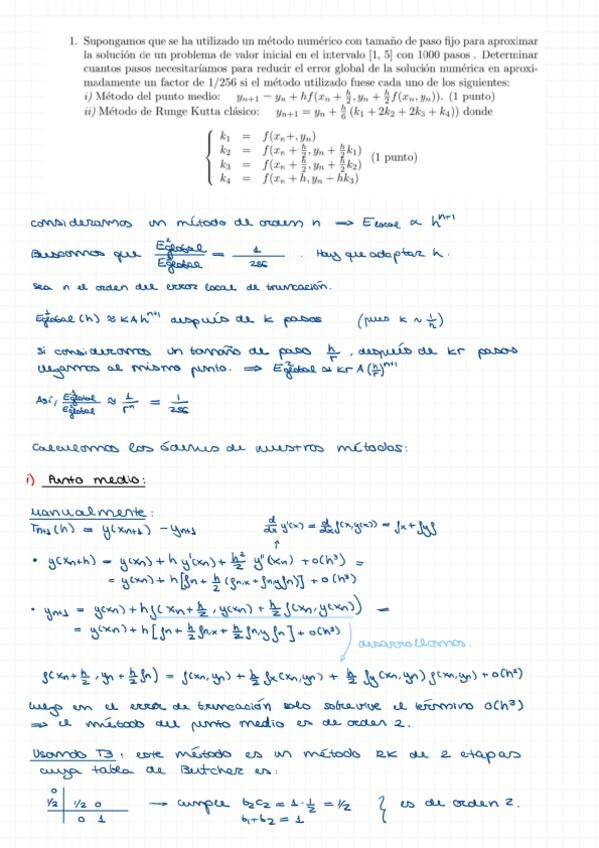 1. Supongamos que se ha utilizado un método numérico con tamaño de paso fijo para aproximar
la solución de un problema de valor inicial en el intervalo [1, 5] con 1000 pasos . Determinar
cuantos pasos necesitaríamos para reducir el error global de la solución numérica en aproxi-
madamente un factor de 1/256 si el método utilizado fuese cada uno de los siguientes:
i) Método del punto medio: yₙ₊₁ = yₙ + hf(xₙ + h/2, yₙ + h/2 f(xₙ, yₙ)). (1 punto)
ii) Método de Runge Kutta clásico: yₙ₊₁ = yₙ + h/6 (k₁ + 2k₂ + 2k₃ + k₄)) donde
k₁ = f(xₙ+, yₙ)
k₂ = f(xₙ + h/2, yₙ + h/2 k₁)
k₃ = f(xₙ + h/2, yₙ + h/2 k₂) (1 punto)
k₄ = f(xₙ + h, yₙ + hk₃)
consideramos un método de orden n ⟹ Elocal ∝ hⁿ⁺¹
Buscamos que E²global / E¹global = 1/256 . Hay que adaptar h.
sea n el orden del error local de truncación.
E¹global (h) ≈ kAhⁿ⁺¹ después de k pasos (pues k ~ 1/h)
si consideramos un tamaño de paso h/r , después de kr pasos
llegamos al mismo punto. ⟹ E²global ≈ kr A(h/r)ⁿ⁺¹
Así, E²global / E¹global ≈ 1/rⁿ = 1/256
Calculemos los órdenes de nuestros métodos:
i) Punto medio:
Manualmente:
Tn+1(h) = y(xn+1) - yn+1 d/dx y'(x) = d/dx f(x,y(x)) = fx + fyf
↑
• y(xn+h) = y(xn) + h y'(xn) + h²/2 y''(xn) + o(h³) =
= y(xn) + h[fn + h/2 (fn,x + fn,y fn)] + o(h³)
• yn+1 = y(xn) + hf(xn + h/2, y(xn) + h/2 f(xn, y(xn))) =
= y(xn) + h[fn + h/2 fn,x + h/2 fn,y fn] + o(h³)
desarrollamos.
f(xn + h/2, yn + h/2 fn) = f(xn, yn) + h/2 fx(xn, yn) + h/2 fy(xn, yn) f(xn, yn) + o(h²)
luego en el error de truncación solo sobrevive el término o(h³)
⟹ el método del punto medio es de orden 2.
Usando T3: este método es un método RK de 2 etapas
cuya tabla de Butcher es:
0
1/2 | 1/2 0 → cumple b₂c₂ = 1·1/2 = 1/2 } es de orden 2.
0 1 b₁+b₂ = 1